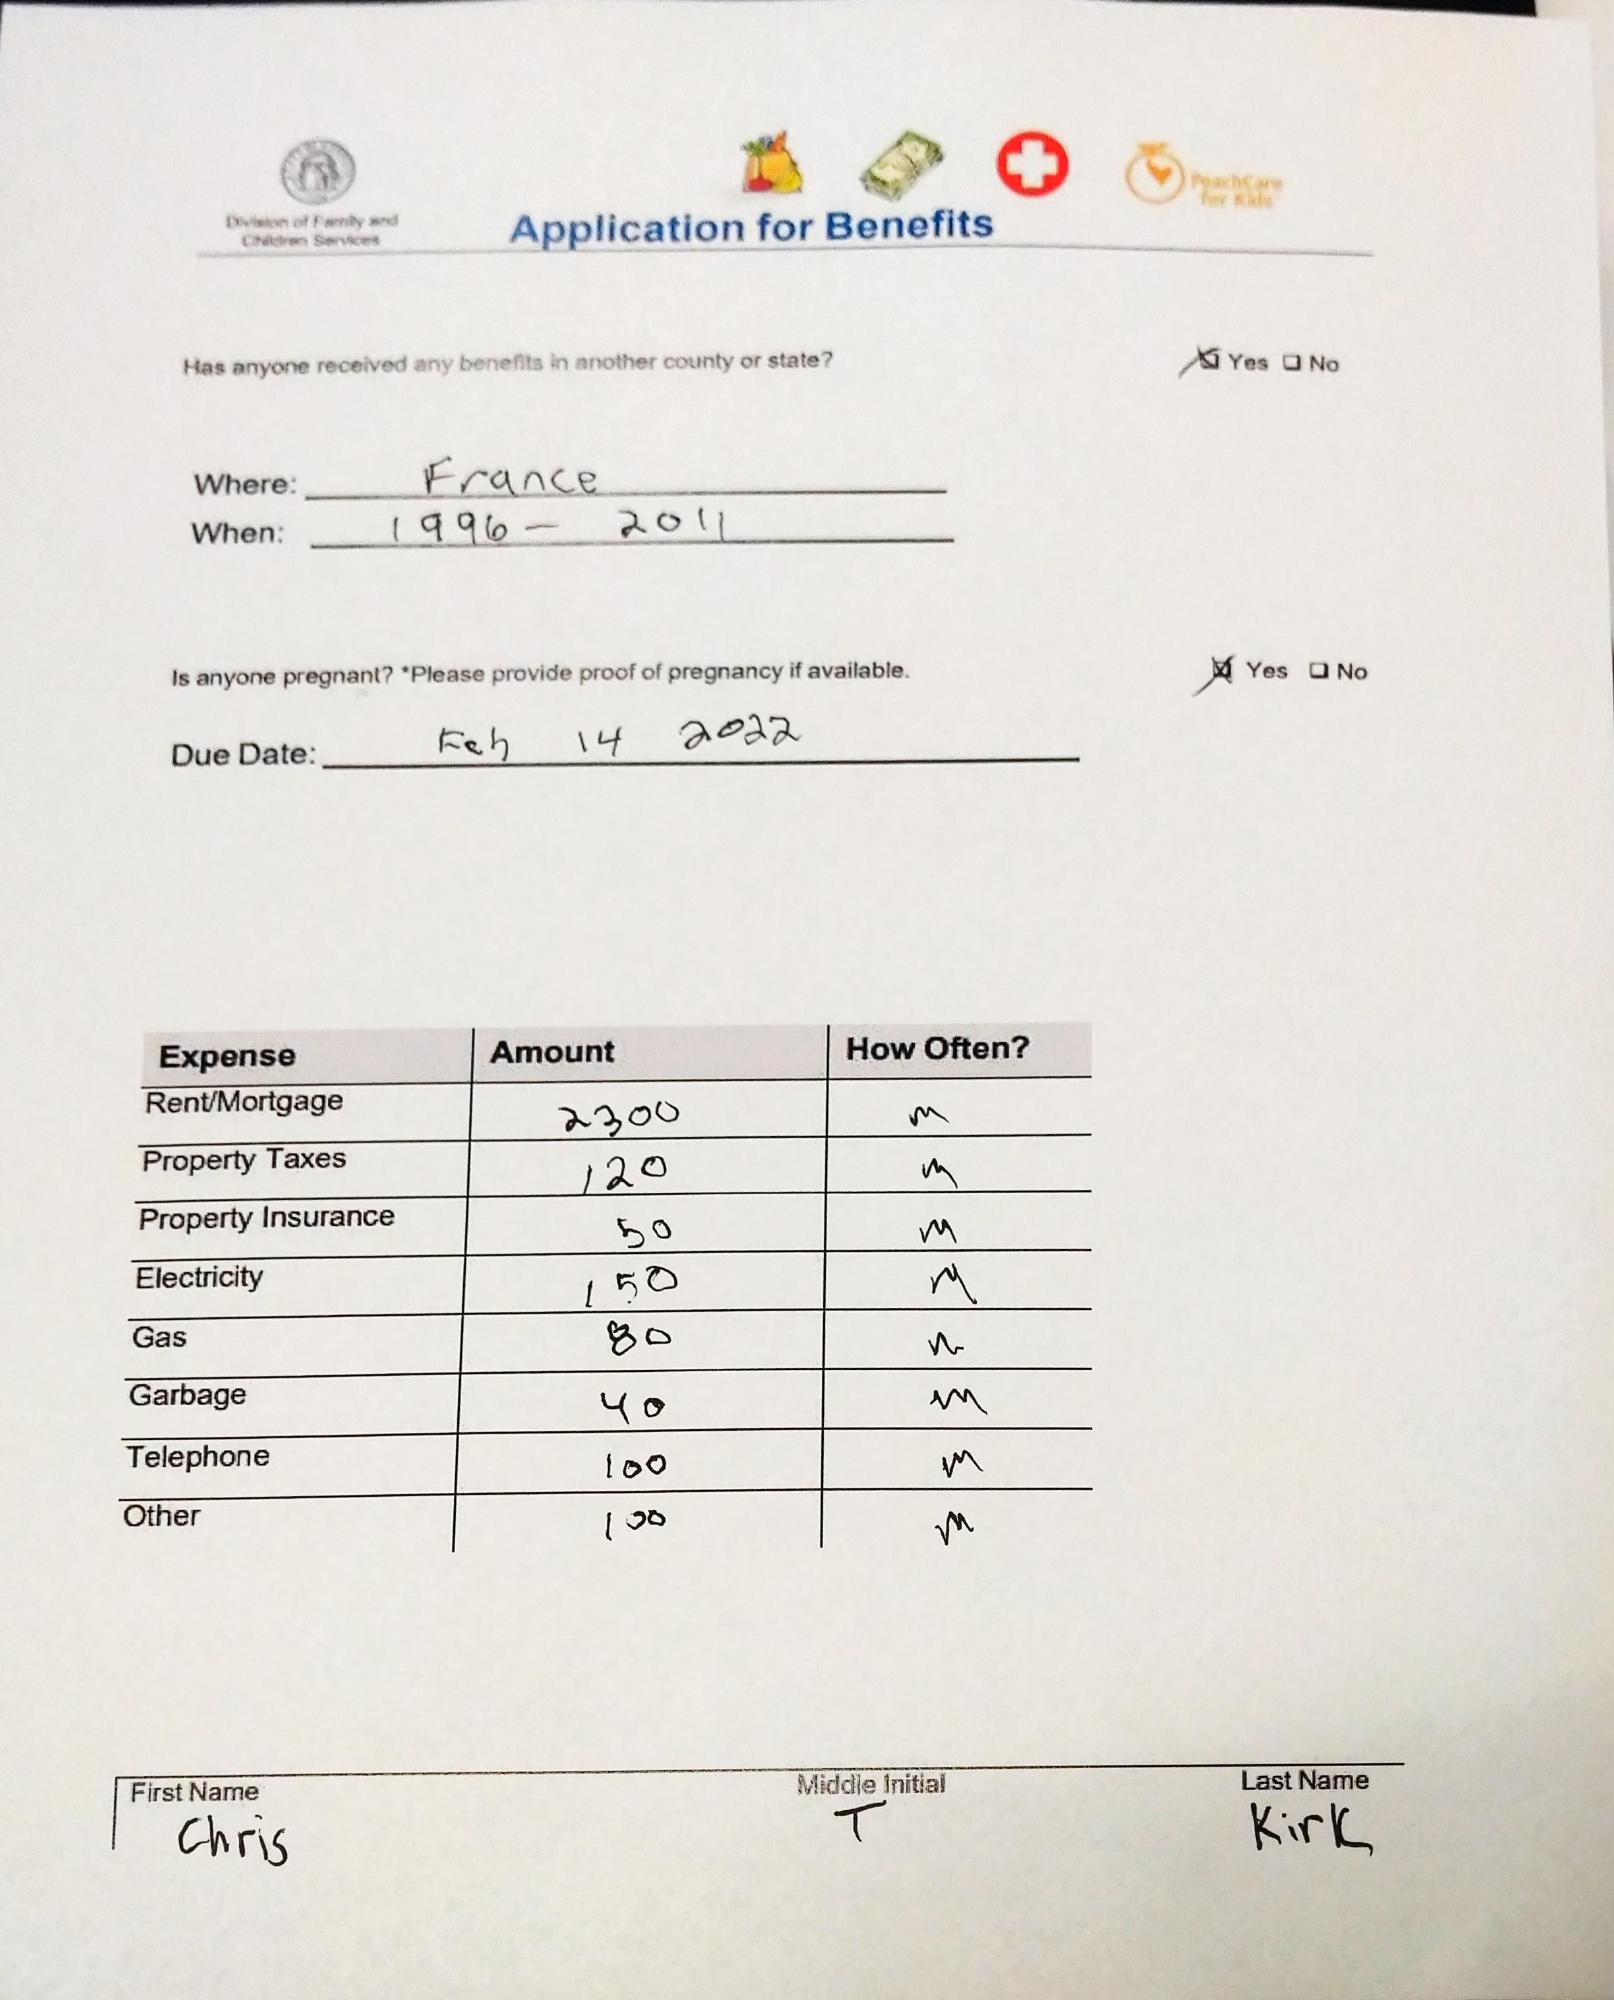 Division of Family and
Children Services
PeachCare
for Kids
Application for Benefits
Has anyone received any benefits in another county or state? Yes No
Where: France
When: 1996 - 2011
Is anyone pregnant? *Please provide proof of pregnancy if available. Yes No
Due Date: Feb 14 2022
Expense Amount How Often?
Rent/Mortgage 2300 m
Property Taxes 120 m
Property Insurance 50 m
Electricity 150 m
Gas 80 m
Garbage 40 m
Telephone 100 m
Other 100 m
First Name Middle Initial Last Name
Chris T Kirk